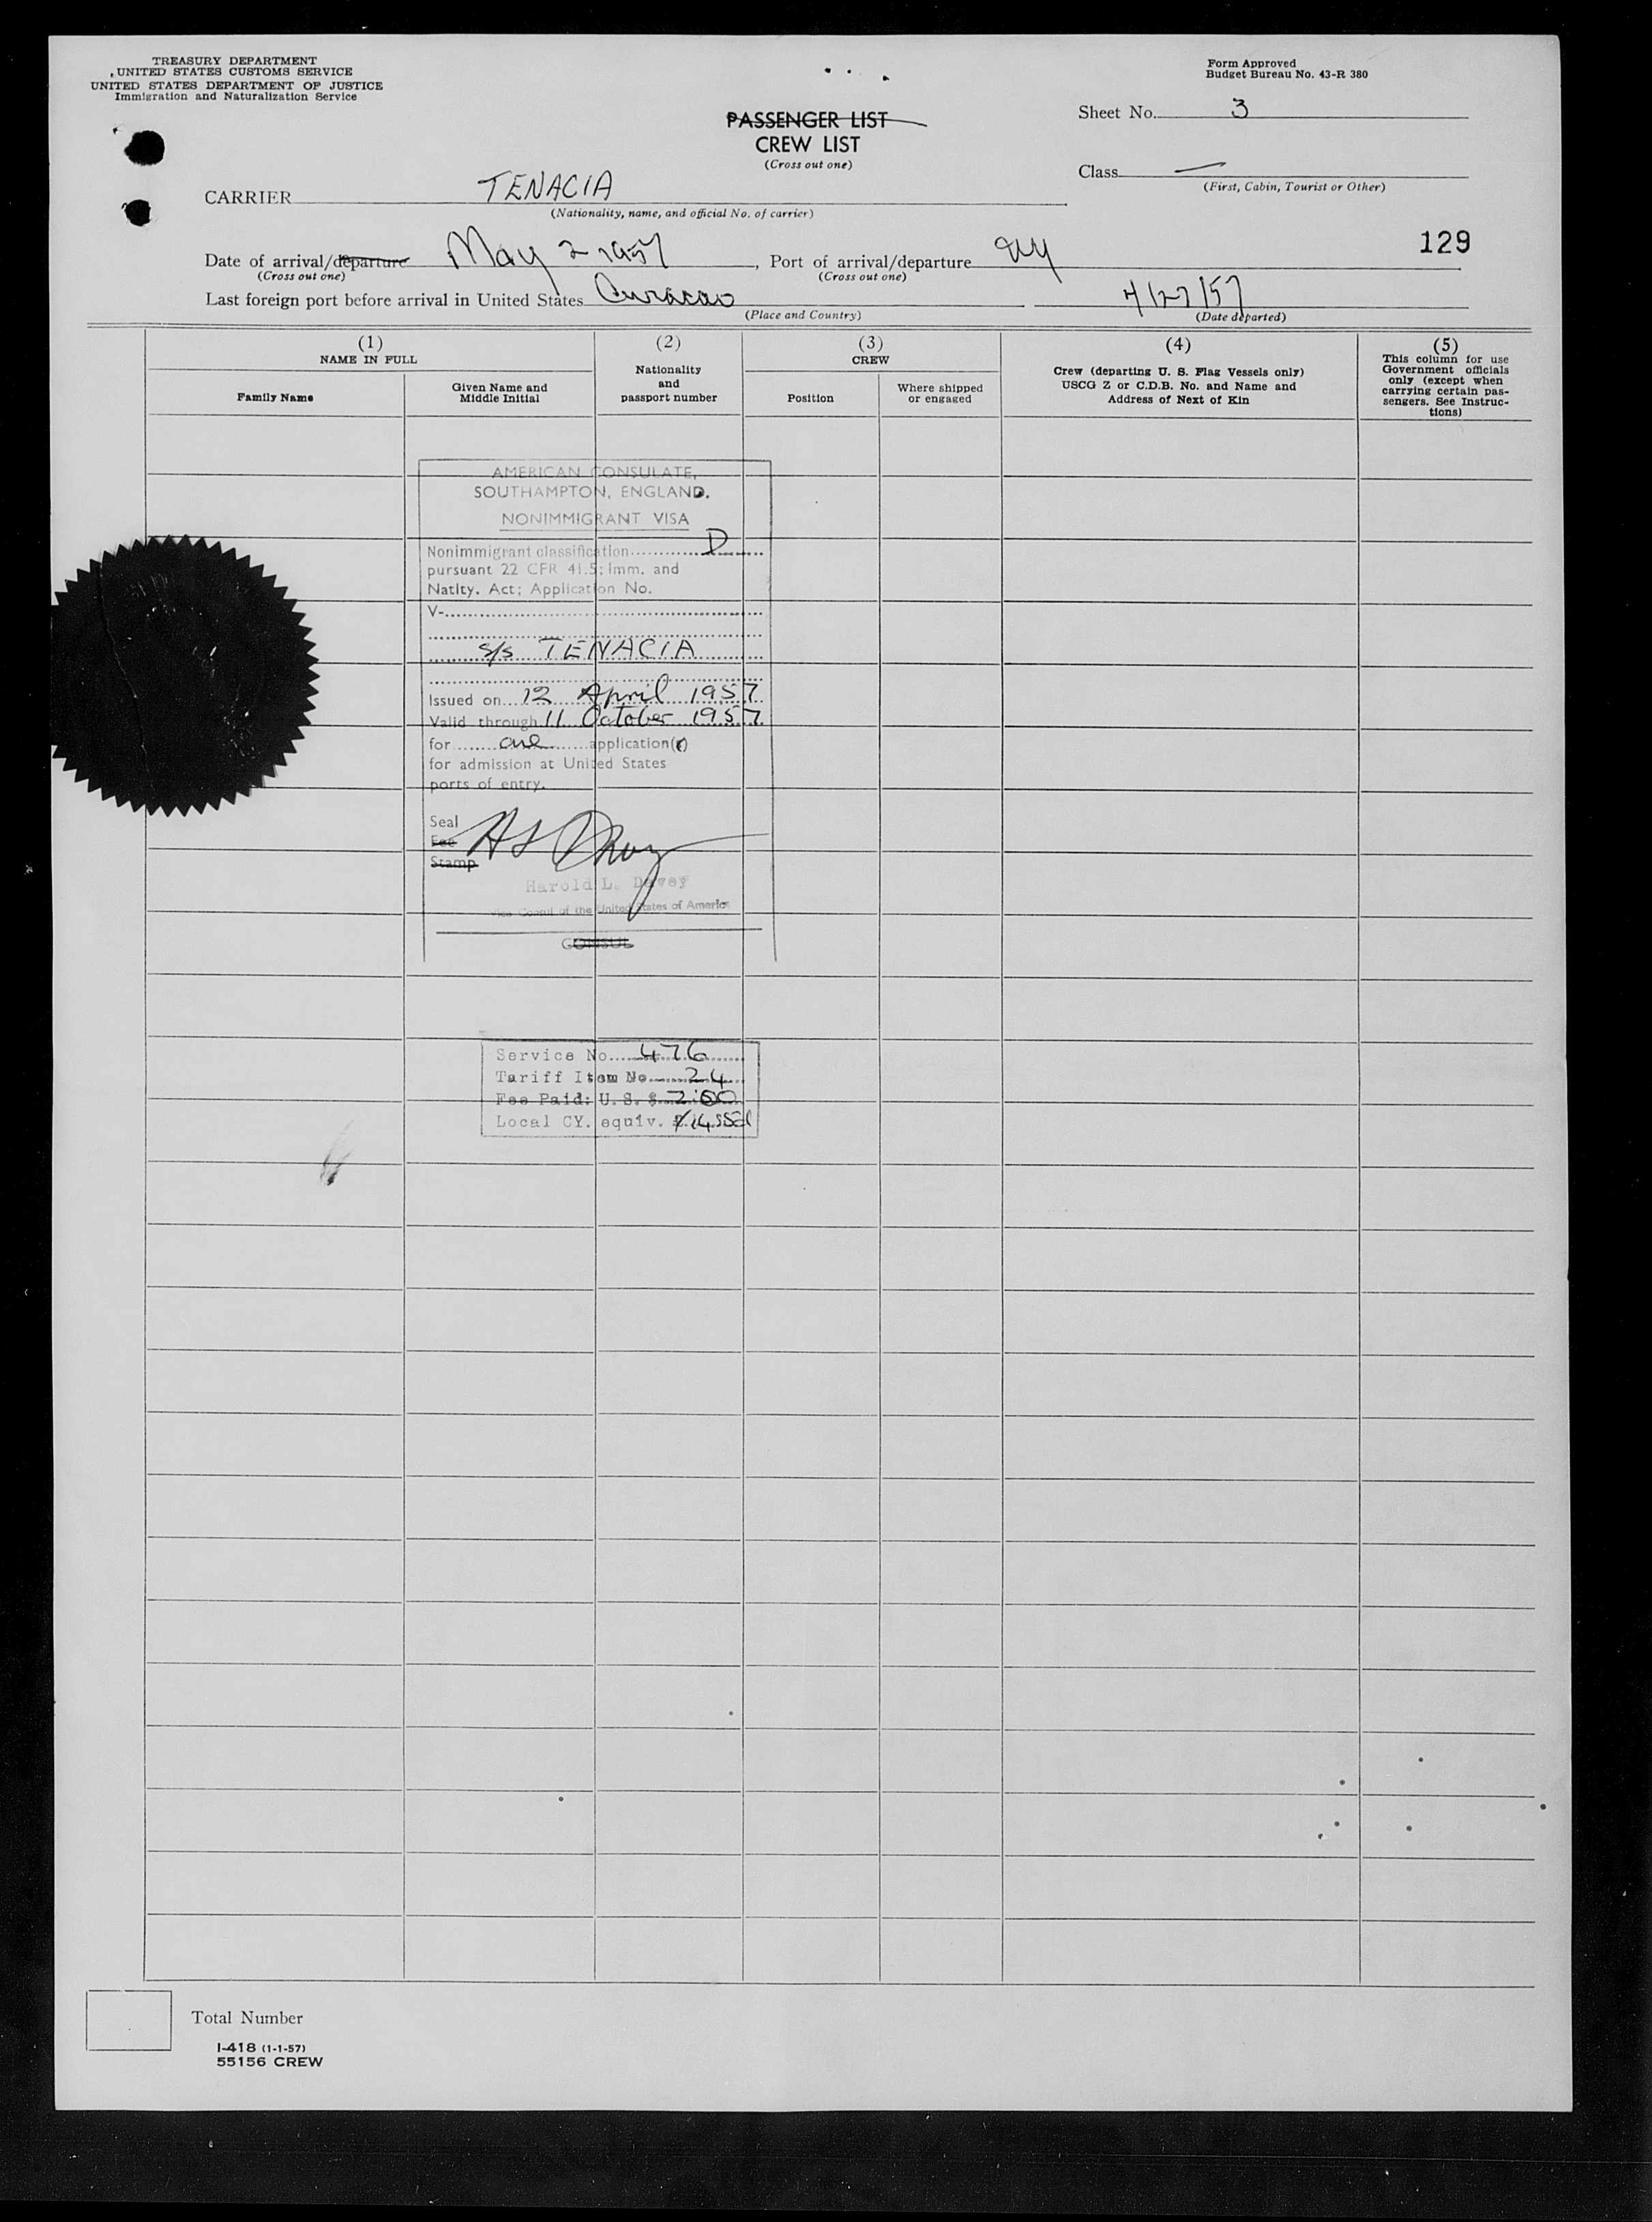 TREASURY DEPARTMENT
UNITED STATES CUSTOMS SERVICE
UNITED STATES DEPARTMENT OF JUSTICE
Immigration and Naturalization Service
Form Approved
Budget Bureau No. 43-R 380
PASSENGER LIST
CREW LIST
(Cross out one)
Sheet No. 3
Class
(First, Cabin, Tourist or Other)
CARRIER TENACIA
(Nationality, name, and official No. of carrier)
129
Date of arrival/departure May 2 1957, Port of arrival/departure NY
(Cross out one) (Cross out one)
Last foreign port before arrival in United States Curacao 4/27/57
(Place and Country) (Date departed)
(1)
NAME IN FULL
Family Name
Given Name and
Middle Initial
(2)
Nationality
and
passport number
(3)
CREW
Position
Where shipped
or engaged
(4)
Crew (departing U. S. Flag Vessels only)
USCG Z or C.D.B. No. and Name and
Address of Next of Kin
(5)
This column for use
Government officials
only (except when
carrying certain pas-
sengers. See Instruc-
tions)
AMERICAN CONSULATE,
SOUTHAMPTON, ENGLAND.
NONIMMIGRANT VISA
Nonimmigrant classification D
pursuant 22 CFR 41.5; Imm. and
Natlty. Act; Application No.
V-
S/s TENACIA
Issued on 12 April 1957
Valid through 11 October 1957
for one application(s)
for admission at United States
ports of entry.
Seal
Fee
Stamp
Harold L. Davey
Vice Consul of the United States of America
CONSUL
Service No. 476
Tariff Item No. 24
Fee Paid: U. S. $ 2.00
Local CY. equiv.
Total Number
I-418 (1-1-57)
55156 CREW